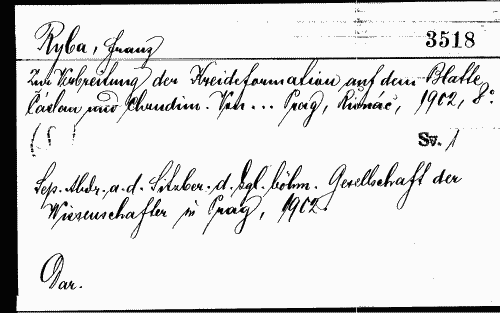 Ryba, Franz
3518
Zur Verbreitung der Kreideformation auf dem Blatte
Čáslau und Chrudim. Von ... Prag, Řivnáč, 1902, 8°.
Sv. 1
Sep. Abdr. a. d. Sitzber. d. kgl. böhm. Gesellschaft der
Wissenschaften in Prag, 1902.
Dar.